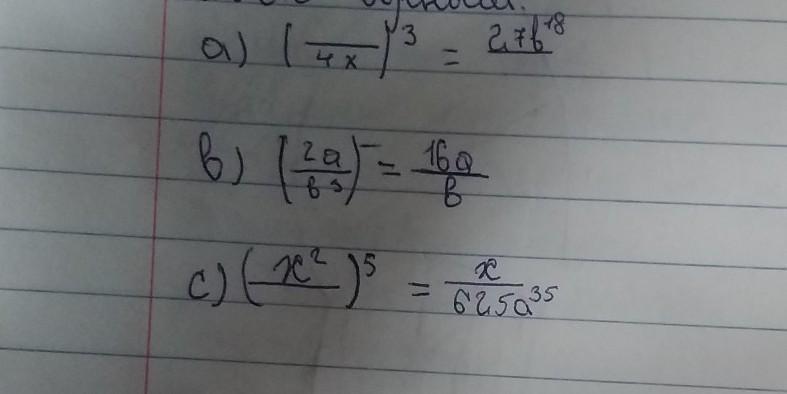 a) (/4x)³ = 27b¹⁸/
b) (2a/b³)⁻ = 16a/b
c) (x²/)⁵ = x/625a³⁵